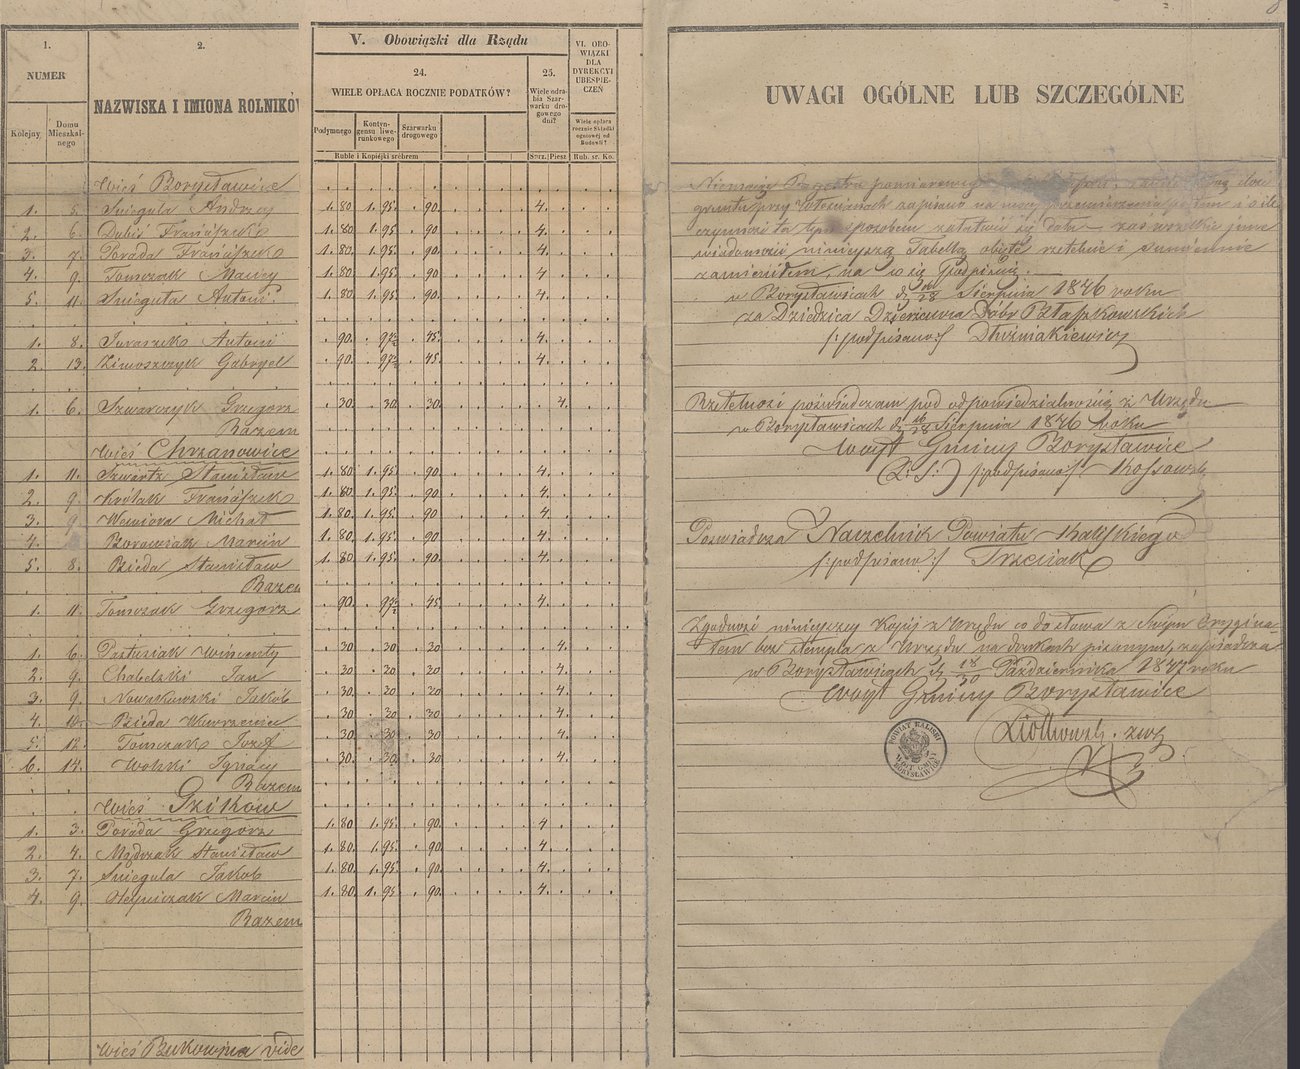 1.
NUMER
Kolejny
Domu Mieszkalnego
2.
NAZWISKA I IMIONA ROLNIKÓW
V. Obowiązki dla Rządu
24.
WIELE OPŁACA ROCZNIE PODATKÓW?
Podymnego
Kontyngensu liwerunkowego
Szarwarku drogowego
Ruble i Kopiejki srebrem
25.
Wiele odrabia Szarwarku drogowego dni?
Sprz. Piesz
VI. OBOWIĄZKI DLA DYREKCYI UBESPIECZEŃ
Wiele opłaca rocznie Składki ogniowej od Budowli?
Rub. sr. Ko.
Wieś Borysławice
1. 5. Śniegula Andrzej 1. 80 1. 95. 90. 4.
2. 6. Dubiś Franciszek 1. 80 1. 95. 90 4.
3. 7. Porada Franciszek 1. 80 1. 95. 90 4.
4. 9. Tomczak Maciej 1. 80 1. 95. 90 4.
5. 11. Śnieguła Antoni 1. 80. 1. 95. 90. 4.
1. 8. Juraszek Antoni 90. 97½ 45. 4.
2. 13. Limoszczyk Gabryel 90. 97½ 45. 4.
1. 6. Szwarczyk Grzegorz 30. 30. 30. 4.
Razem
Wieś Chrzanowice
1. 11. Szwartz Stanisław 1. 80 1. 95. 90 4.
2. 9. Królak Franciszek 1. 80 1. 95. 90 4.
3. 9. Wewióra Michał 1. 80. 1. 95. 90 4.
4. Borowiak Marcin 1. 80 1. 95. 90 4.
5. 8. Bieda Stanisław 1. 80 1. 95. 90 4.
Razem
1. 11. Tomczak Grzegorz 90. 97½ 45. 4.
1. 6. Pastusiak Wincenty 30 30 30 4.
2. 9. Chabelski Jan 30 20 20 4.
3. 9. Nowakowski Jakób 30. 20 20 4.
4. 10. Bieda Wawrzeniec 30 30 30 4.
5. 12. Tomczak Józef 30. 30 30 4.
6. 14. Wolski Ignacy 30. 30 30 4.
Razem
Wieś Gzików
1. 3. Porada Grzegorz 1. 80 1. 95. 90. 4
2. 4. Mądrzak Stanisław 1. 80. 1. 95. 90. 4.
3. 7. Śniegula Jakób 1. 80 1. 95 90. 4.
4. 9. Marcin 1. 80. 1. 95 90. 4.
Razem
Wieś Bukownia vide
UWAGI OGÓLNE LUB SZCZEGÓLNE
Niemając Rejestru pomiarowego
gruntu przy Włościanach zapisano na mocy i o ile
czynność ta tym sposobem załatwić się dała – zaś wszelkie inne
wiadomości niniejszą Tabellą objęte rzetelnie i sumiennie
zamieściłem, na co się podpisuję.
w Borysławicach d. 16/28 Sierpnia 1846 roku
za Dziedzica Dzierżawca Dóbr Błaszkowskich
/:podpisano:/ Dłużniakiewicz
Rzetelność poświadczam pod odpowiedzialnością z Urzędu
w Borysławicach d. 16/28 Sierpnia 1846 roku
Wójt Gminy Borysławice
(L: S:) /:podpisano:/ Kossowski
Poświadcza Naczelnik Powiatu Kaliskiego
/:podpisano:/ Trzeciak
Zgodność niniejszey Kopij z Urzędu co do słowa z Swym Orygina-
łem bez stempla z Urzędu na drukach pisanym, zaświadcza
w Borysławicach d. 18/30 Października 1847 roku
Wójt Gminy Borysławice
Ziółkowski
POWIAT KALISKI
WÓJT GMINY BORYSŁAWICE